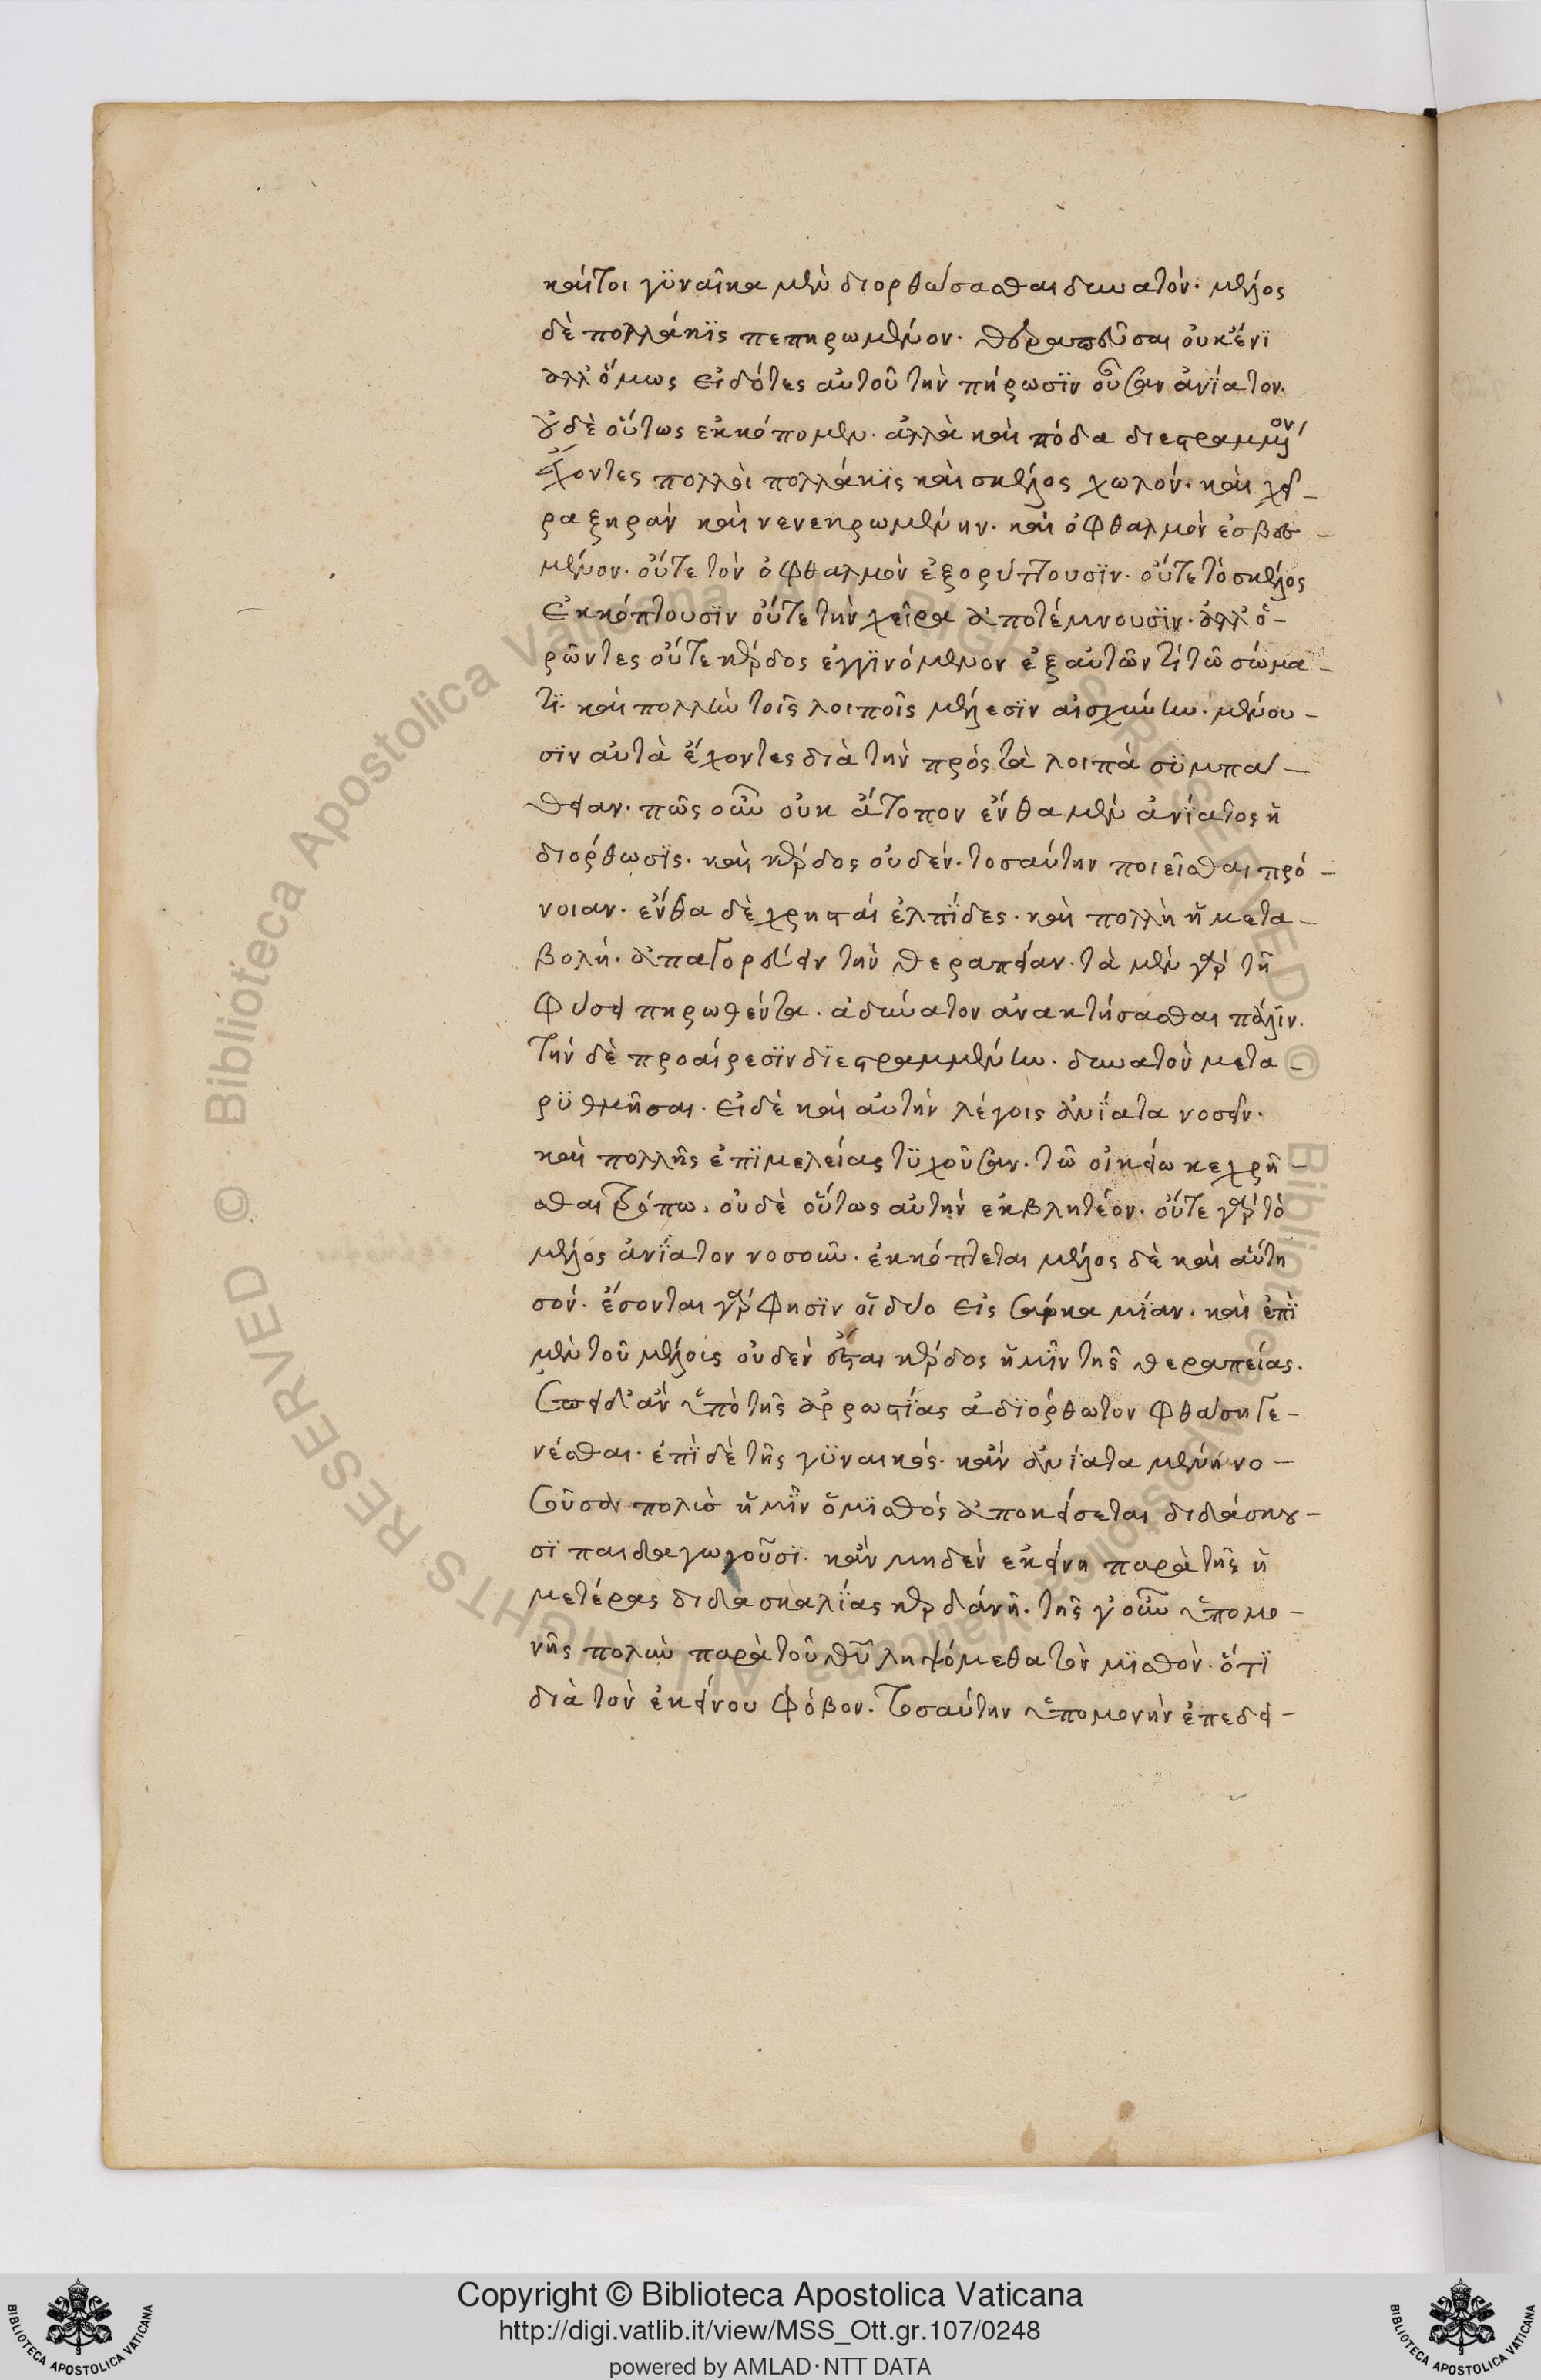 καίτοι γϋναῖκα μὲν διορθώσασθαι δυνατόν· μέλος
δὲ πολλάκϊς πεπηρωμένον· θεραπεῦσαι οὐκ ἔνϊ
ἀλλ' ὅμως εἰδότες αὐτοῦ τὴν πήρωσϊν οὖσαν ἀνΐατον.
οὐδὲ οὕτως ἐκκόπομεν· ἀλλὰ καὶ πόδα διεστραμμένον
ἔχοντες πολλοὶ πολλάκϊς καὶ σκέλος χωλόν· καὶ χεῖ–
ρα ξηρὰν καὶ νενεκρωμένην· καὶ ὀφθαλμὸν ἐσβεσ–
μένον· οὔτε τὸν ὀφθαλμὸν ἐξορύττουσϊν· οὔτε τὸ σκέλος
ἐκκόπτουσϊν οὔτε τὴν χεῖρα ἀποτέμνουσϊν· ἀλλ' ὁ–
ρῶντες οὔτε κέρδος ἐγγϊνόμενον ἐξ αὐτῶν τί τῶ σώμα–
τϊ· καὶ πολλὴν τοῖς λοιποῖς μέλεσϊν αἰσχύνην· μένου–
σϊν αὐτὰ ἔχοντες διὰ τὴν πρὸς τὰ λοιπὰ σϋμπά–
θειαν· πῶς οὖν οὐκ ἄτοπον ἔνθα μὲν ἀνΐατος ἡ
διόρθωσϊς· καὶ κέρδος οὐδέν· τοσαύτην ποιεῖσθαι πρό–
νοιαν· ἔνθα δὲ χρησταὶ ἐλπΐδες· καὶ πολλὴ ἡ μετα–
βολή· ἀπαγορεύειν τὴν θεραπείαν· τὰ μὲν γὰρ τῆ
φύσει πηρωθέντα· ἀδύνατον ἀνακτήσασθαι πάλϊν.
τὴν δὲ προαίρεσϊν δϊεστραμμένην· δυνατὸν μετα–
ρϋθμῆσαι· εἰ δὲ καὶ αὐτὴν λέγοις ἀνΐατα νοσεῖν·
καὶ πολλῆς ἐπϊμελείας τϋχοῦσαν· τῶ οἰκείω κεχρῆ–
σθαι τρόπω· οὐδὲ οὕτως αὐτὴν ἐκβλητέον· οὔτε γὰρ τὸ
μέλος ἀνΐατον νοσοῦν· ἐκκόπτεται μέλος δὲ καὶ αὕτη
σόν· ἔσονται γάρ φησϊν οἱ δύο εἰς σάρκα μίαν· καὶ ἐπὶ
μὲν τοῦ μέλοις οὐδὲν ἔσται κέρδος ἡμῖν τῆς θεραπείας.
ὅταν ὑπὸ τῆς ἀρρωστΐας ἀδϊόρθωτον φθάση γε–
νέσθαι· ἐπὶ δὲ τῆς γϋναικός· κἂν ἀνΐατα μένη νο–
σοῦσα πολὺσ ἡμῖν ὁ μϊσθὸς ἀποκείσεται διδάσκου–
σϊ παιδαγωγοῦσϊ· κἂν μηδὲν ἐκείνη παρὰ τῆς ἡ
μετέρας διδασκαλΐας κερδάνη· τῆς γοῦν ὑπομο–
νῆς πολὺν παρὰ τοῦ θῦ ληψόμεθα τὸν μϊσθόν· ὅτϊ
διὰ τὸν ἐκείνου φόβον· τοσαύτην ὑπομονὴν ἐπεδει–
Copyright © Biblioteca Apostolica Vaticana
http://digi.vatlib.it/view/MSS_Ott.gr.107/0248
powered by AMLAD·NTT DATA